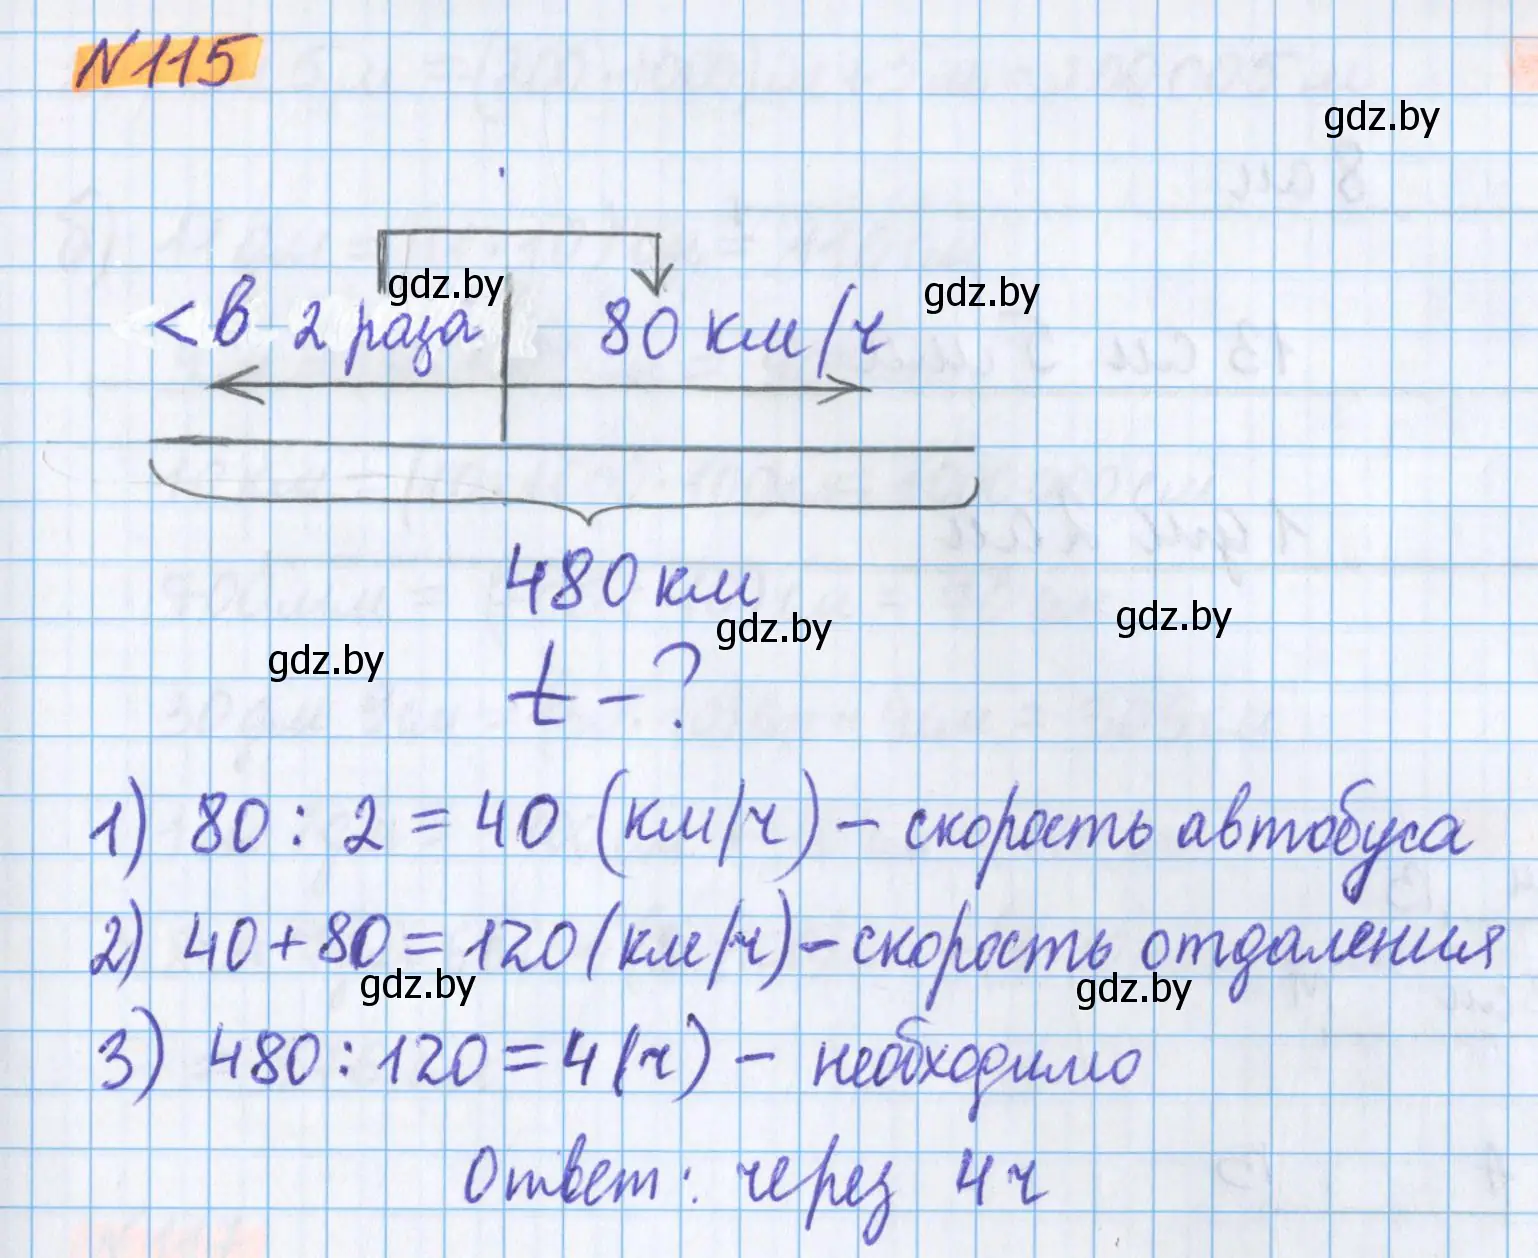 N115
gdz.by
gdz.by
gdz.by
< в 2 раза 80 км/ч
480 км
gdz.by
gdz.by
gdz.by
t - ?
1) 80 : 2 = 40 (км/ч) - скорость автобуса
2) 40 + 80 = 120 (км/ч) - скорость отдаления
gdz.by
gdz.by
3) 480 : 120 = 4 (ч) - необходимо
Ответ: через 4 ч